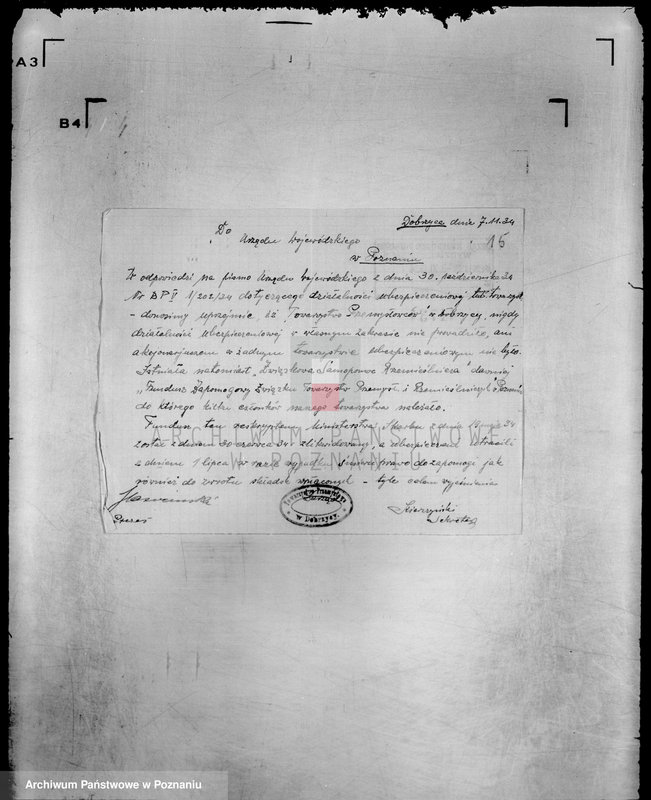 A3
B4
Dobrzyca dnia 7.11.34
Do
Urzędu Wojewódzkiego
w Poznaniu
15
W odpowiedzi na pismo Urzędu Wojewódzkiego z dnia 30. października 34
Nr BP V 1/202/34 dotyczącego działalności ubezpieczeniowej tut. towarzyst.
- donosimy uprzejmie, iż Towarzystwo Przemysłowców w Dobrzycy, nigdy
działalności ubezpieczeniowej i własnym zakresie nie prowadziło, ani
akcjonarjuszem w żadnym towarzystwie ubezpieczeniowym nie było.
Istniała natomiast "Związkowa Samopomoc Rzemieślnicza" dawniej
"Fundusz Zapomogowy Związku Towarzystw Przemysł. i Rzemieślniczych w Poznaniu,
do którego kilku członków naszego towarzystwa należało.
Fundusz ten rozkazem Ministerstwa Skarbu z dnia 34
został z dniem 30 czerwca 34 r zlikwidowany, a ubezpieczeni stracili
z dniem 1 lipca w razie wypadku śmierci prawo do zapomogi jak
również do zwrotu składek wpłaconych - tyle celem wyjaśnienia
Prezes
Towarzystwo Przemysłowców
w Dobrzycy.
Skierzyński
Sekretarz
ARCHIWUM PAŃSTWOWE
W POZNANIU
Archiwum Państwowe w Poznaniu